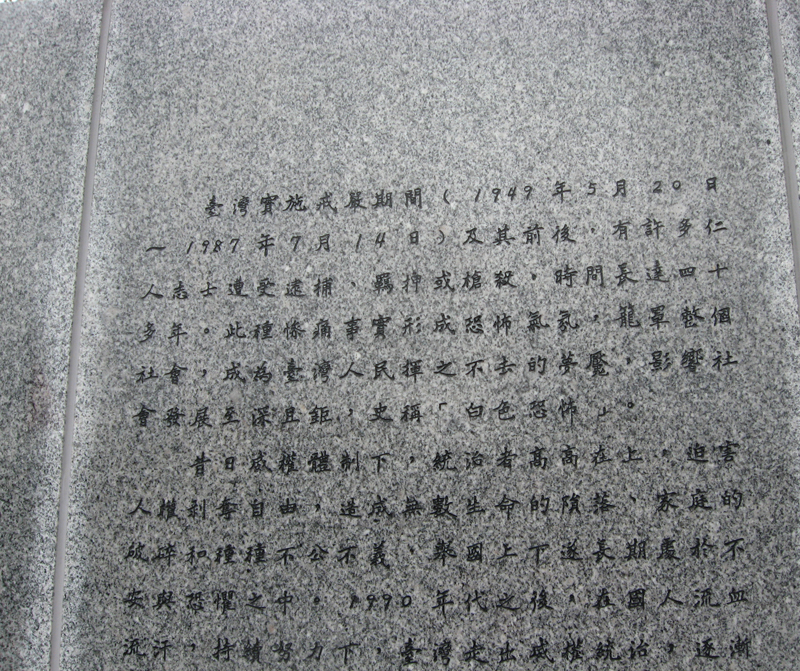 臺灣實施戒嚴期間（1949年5月20日
～1987年7月14日）及其前後，有許多仁
人志士遭受逮捕、羈押或槍殺，時間長達四十
多年。此種慘痛事實形成恐怖氣氛，籠罩整個
社會，成為臺灣人民揮之不去的夢魘，影響社
會發展至深且鉅，史稱「白色恐怖」。
昔日威權體制下，統治者高高在上，迫害
人權剝奪自由，造成無數生命的隕落、家庭的
破碎和種種不公不義，舉國上下遂長期處於不
安與恐懼之中。1990年代之後，在國人流血
流汗，持續努力下，臺灣走出威權統治，逐漸